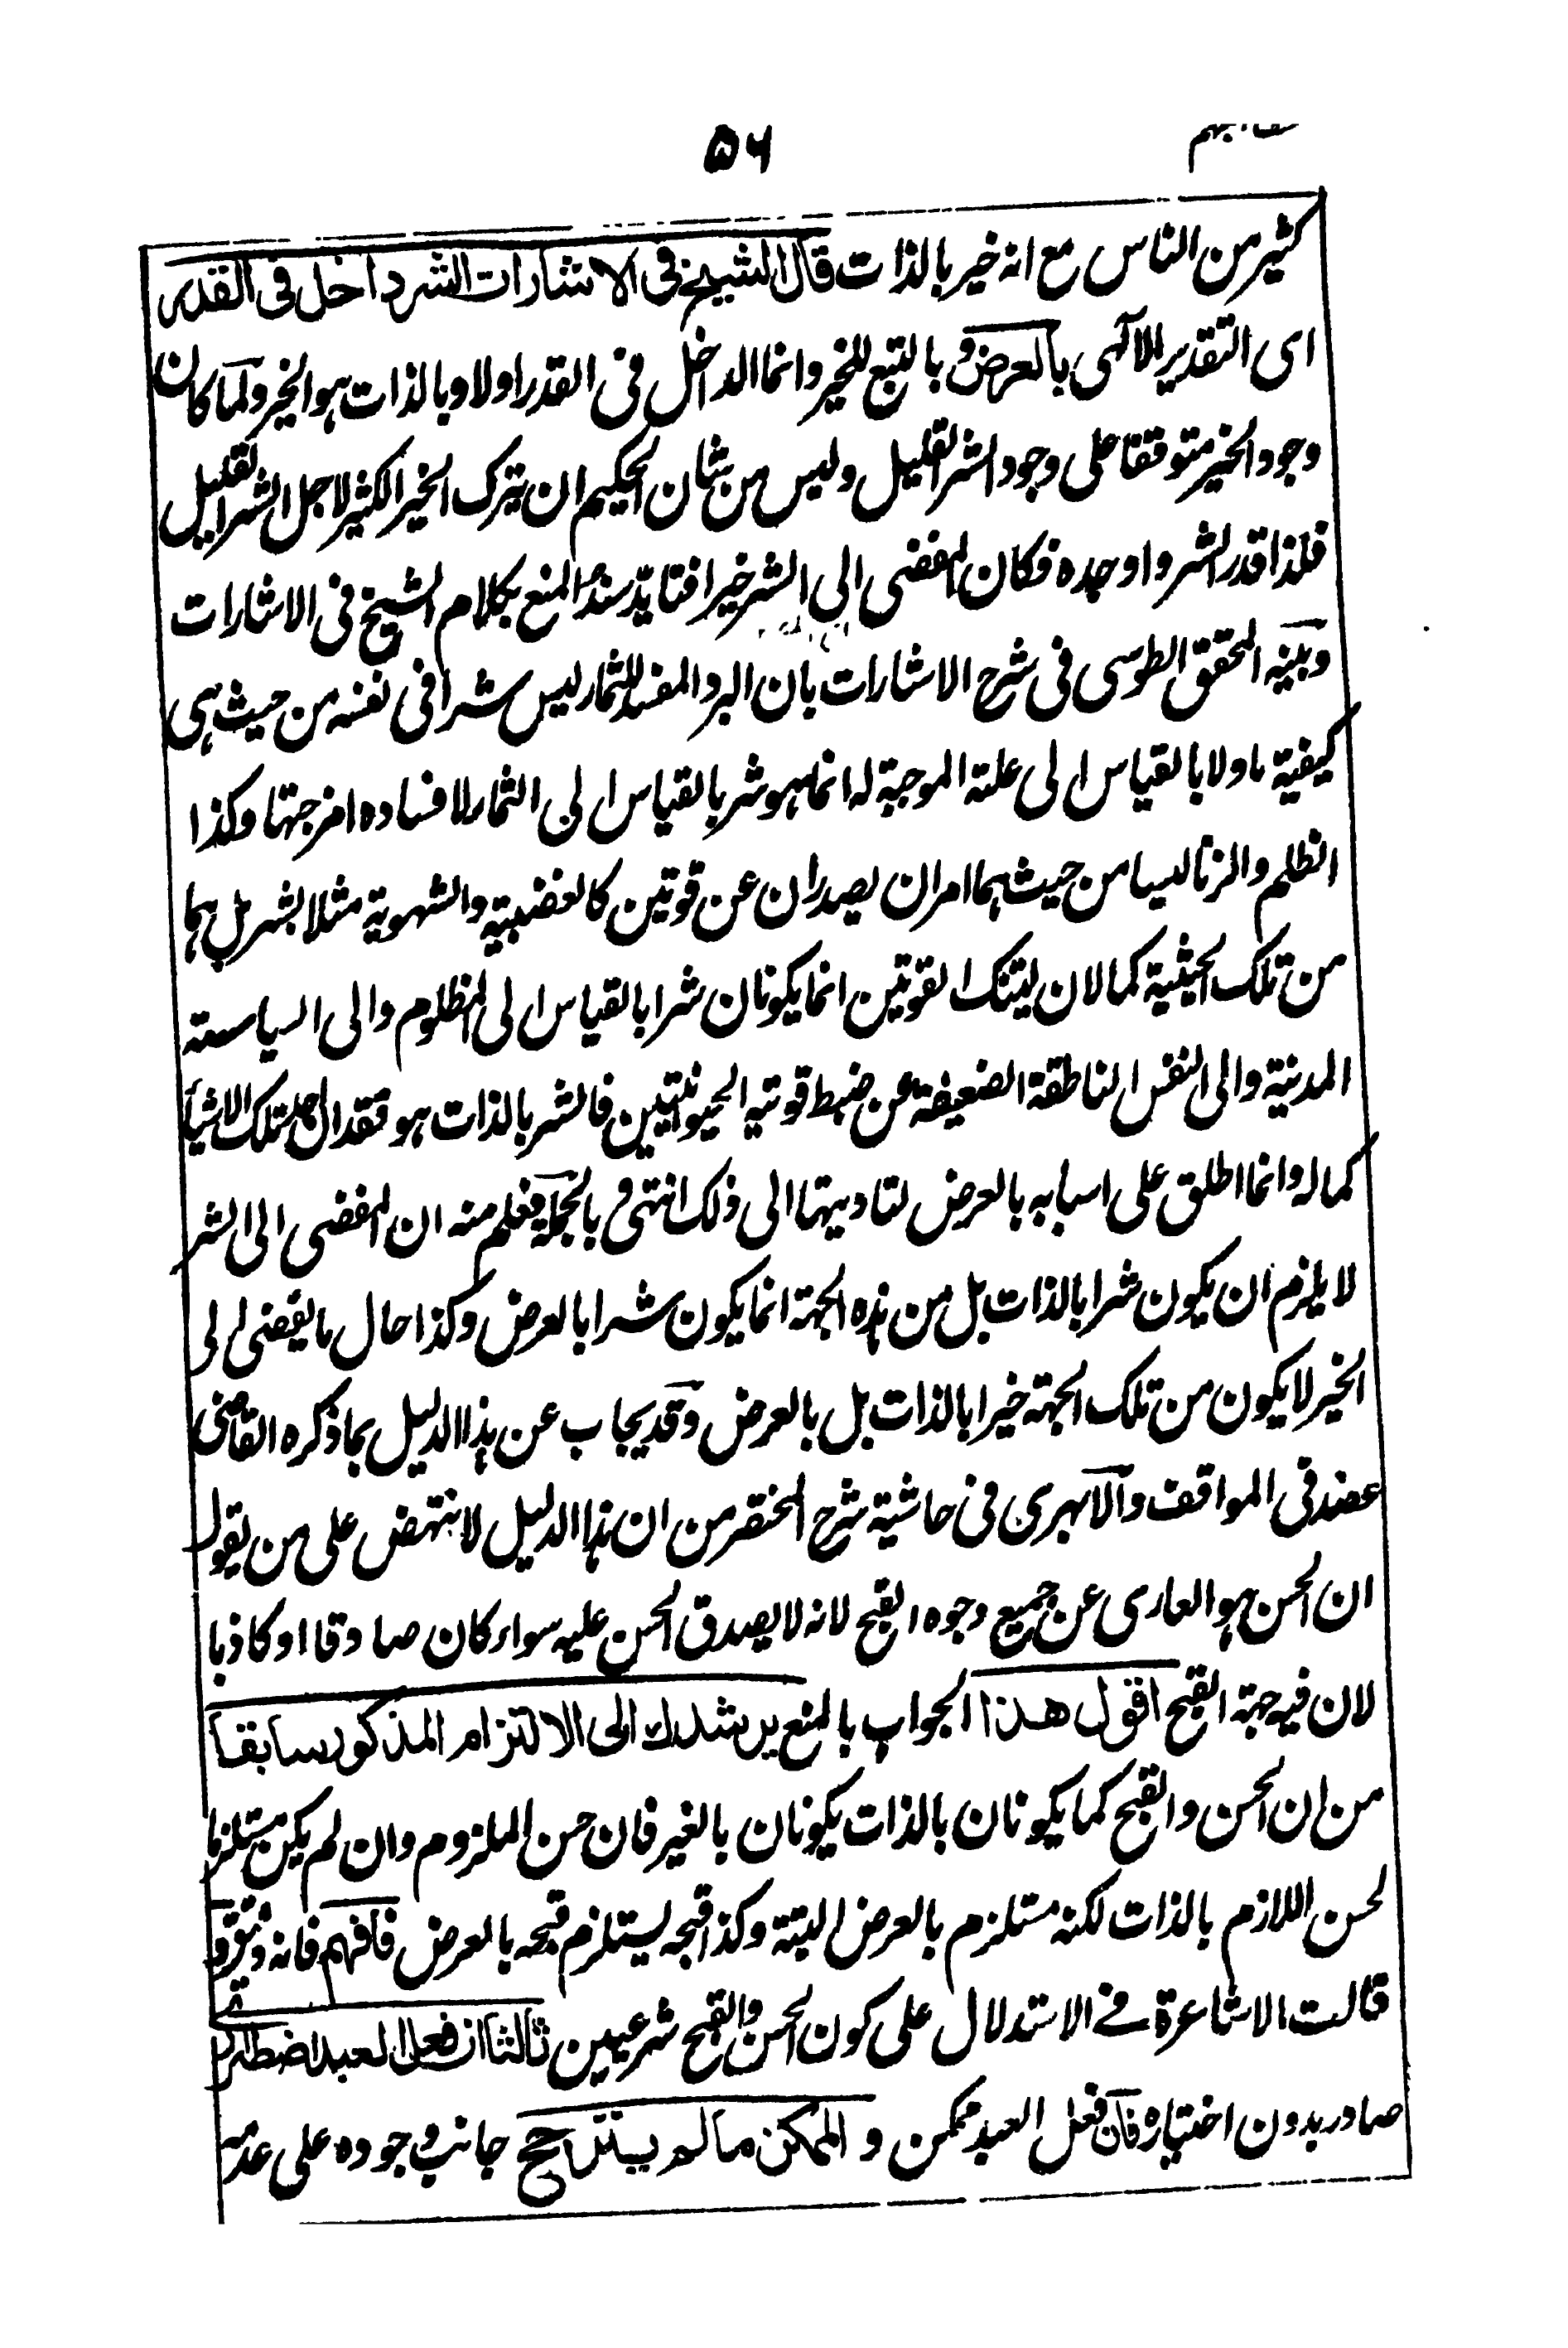 ۵۶
كثير من الناس مع انه خير بالذات قال الشيخ فى الاشارات الشر داخل فى القدر
اى التقدير الالٓهى بالعرض و بالتبع للخير وانما الداخل فى القدر اولا وبالذات هو الخير ولما كان
وجود الخير متوقفا على وجود الشر القليل وليس من شان الحكيم ان يترك الخير الكثير لاجل الشر القليل
فلذا قدر الشر واوجده فكان المفضى الى الشر خيرا فتايّد سند المنع بكلام الشيخ فى الاشارات
وبينه المحقق الطوسى فى شرح الاشارات بان البرد المفسد للثمار ليس شرا فى نفسه من حيث هى
كيفية ما ولا بالقياس الى علته الموجبة له انما هو شر بالقياس الى الثمار لافساده امزجتها وكذا
الظلم والزنا ليسا من حيث هما امران يصدران عن قوتين كالغضبية والشهوية مثلا بشر بل هما
من تلك الحيثية كمالان لتينك القوتين انما يكونان شرا بالقياس الى المظلوم والى السياسة
المدنية والى النفس الناطقة الضعيفة عن ضبط قوتيه الحيوانيتين فالشر بالذات هو فقد احد تلك الاشياء
كماله وانما اطلق على اسبابه بالعرض لتاديتها الى ذلك انتهى وبالجملة فعلم منه ان المفضى الى الشر
لا يلزم ان يكون شرا بالذات بل من هذه الجهة انما يكون شرا بالعرض وكذا حال ما يفضى الى
الخير لا يكون من تلك الجهة خيرا بالذات بل بالعرض وقد يجاب عن هذا الدليل بما ذكره القاضى
عضد فى المواقف والابهرى فى حاشية شرح المختصر من ان هذا الدليل لا ينتهض على من يقول
ان الحسن هو العارى عن جميع وجوه القبح لانه لا يصدق الحسن عليه سواء كان صادقا او كاذبا
لان فيه جهة القبح اقول هذا الجواب بالمنع يرشدك الى الالتزام المذكور سابقا
من ان الحسن والقبح كما يكونان بالذات يكونان بالغير فان حسن الملزوم وان لم يكن مستلزما
لحسن اللازم بالذات لكنه مستلزم بالعرض البتة وكذا قبحه يستلزم قبحه بالعرض فافهم فانه دقيق و
قالت الاشاعرة فى الاستدلال على كون الحسن والقبح شرعيين ثالثا ان فعل العبد اضطرارى
صادر بدون اختياره فان فعل العبد ممكن و الممكن مالم يترجح جانب وجوده على عدمه